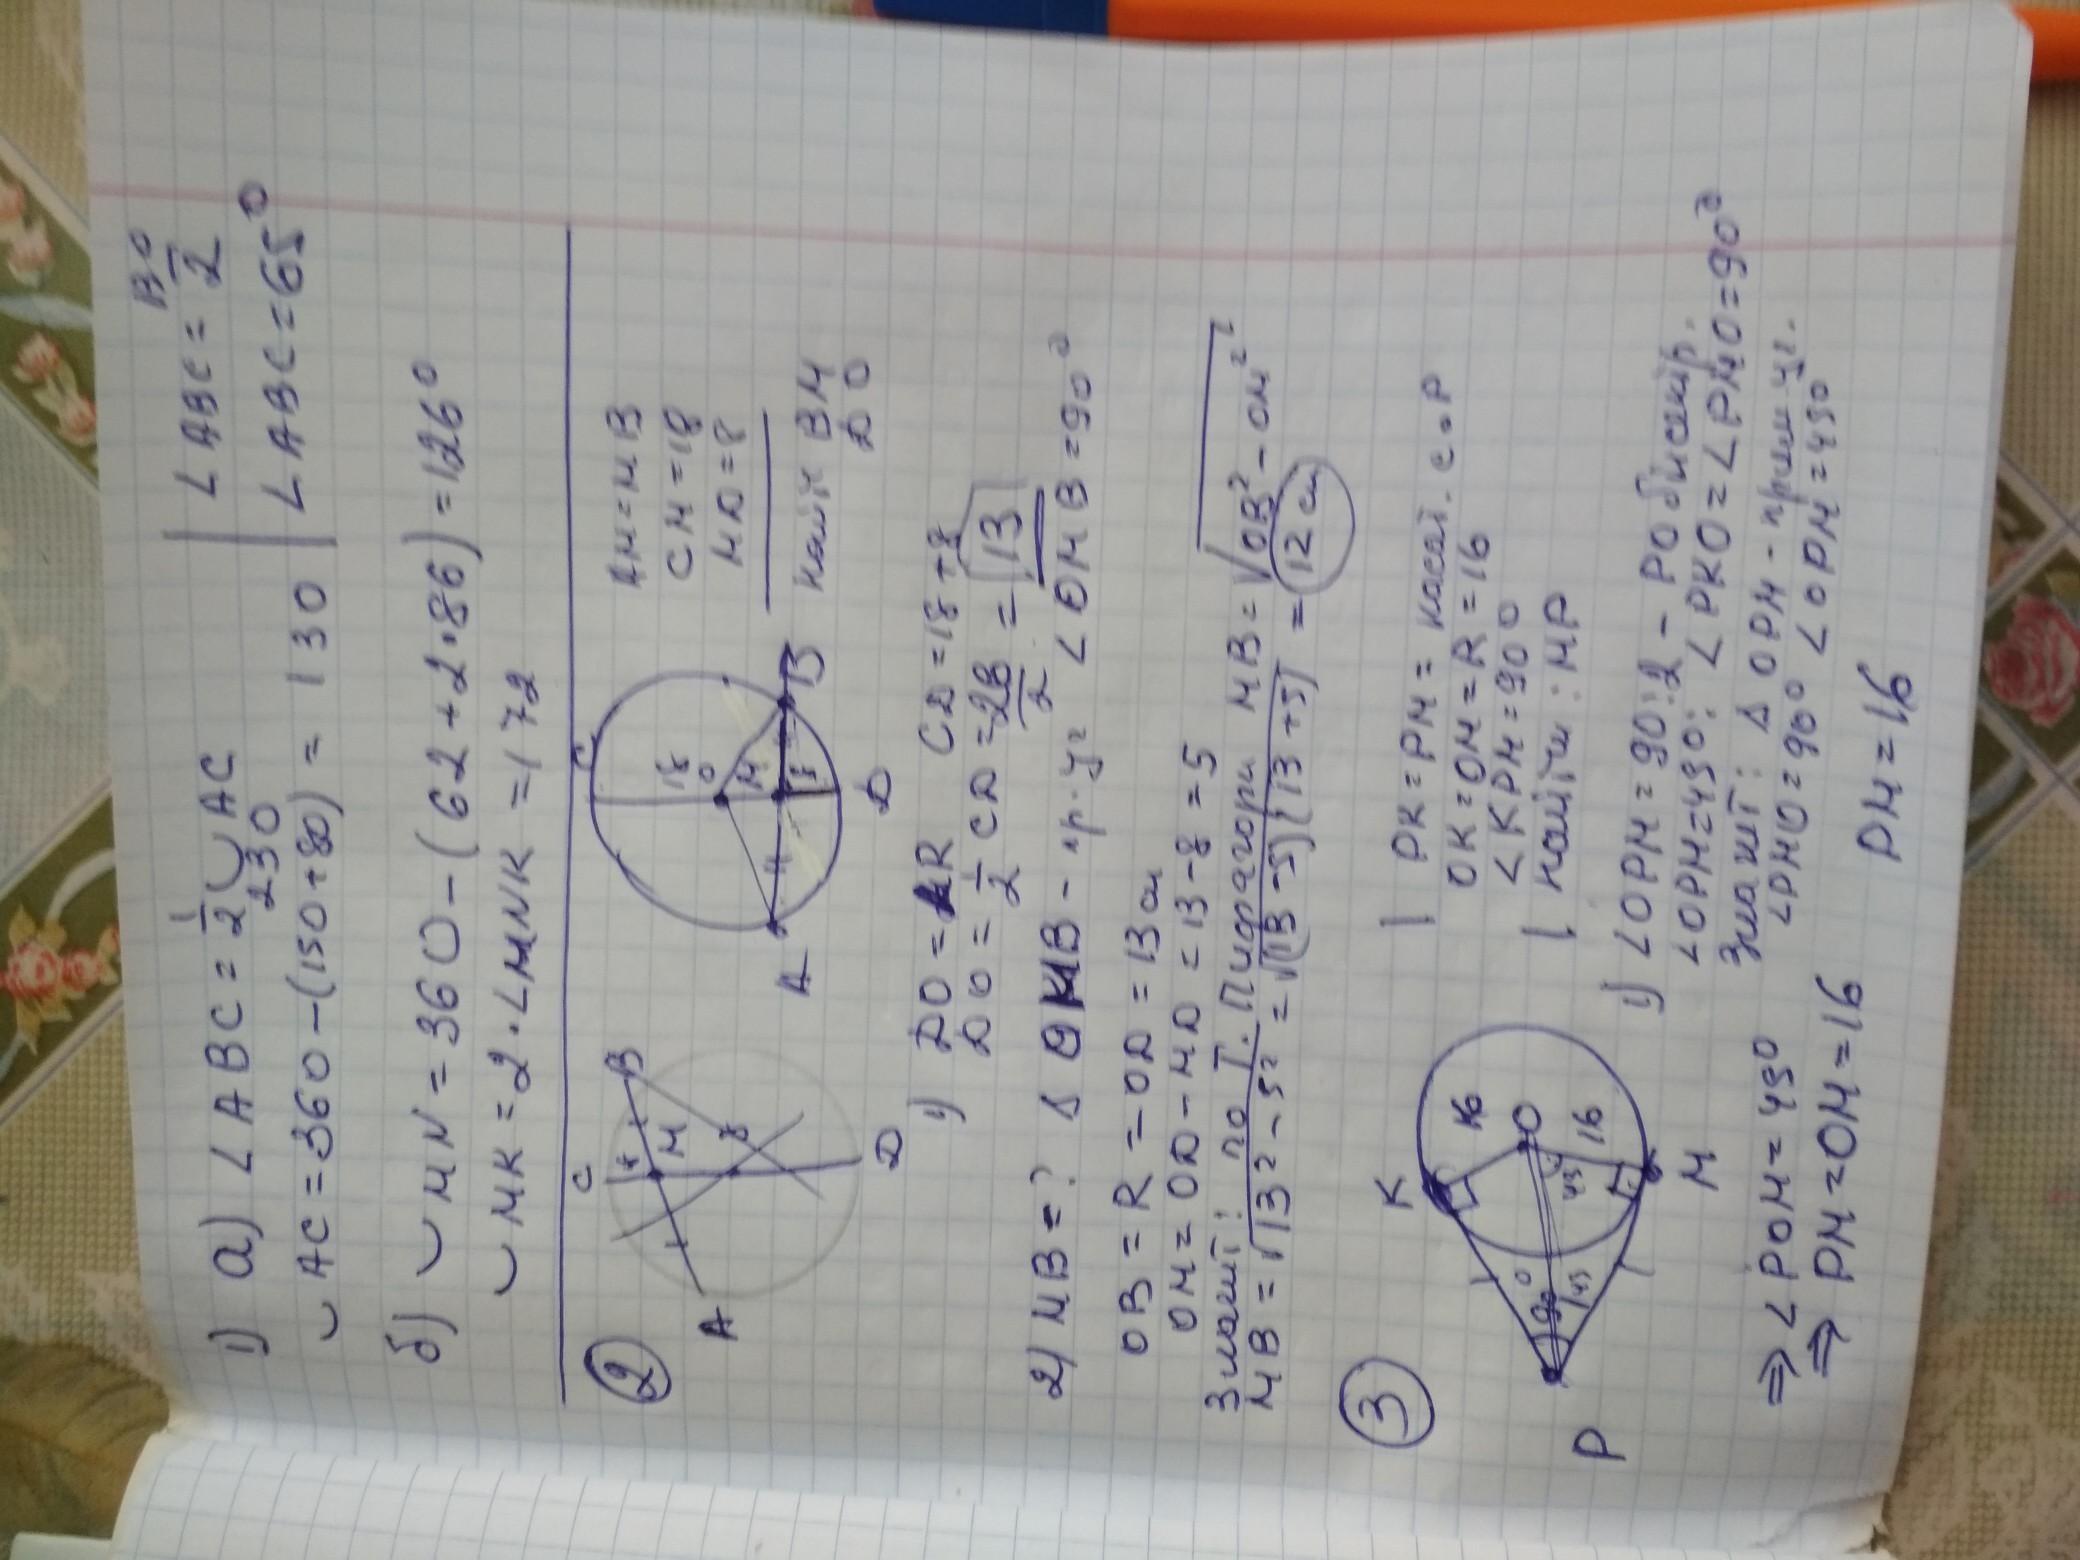 1) а) ∠ABC = 1/2 ◡AC | ∠ABC = 130/2
230
◡AC = 360 - (150 + 80) = 130 | ∠ABC = 65°
б) ◡MN = 360 - (62 + 2·86) = 126°
◡MK = 2·∠MNK = 172
②
C
B
M
A
D
C
18
O
M
A
B
D
AM = MB
CM = 18
MD = 8
найти BM
DO
1) DO = R CD = 18 + 8
DO = 1/2 CD = 26/2 = 13
2) MB = ? Δ OMB - пр. уг ∠OMB = 90°
OB = R = OD = 13 см
OM = OD - MD = 13 - 8 = 5
Значит: по Т. Пифагора MB = √OB² - OM²
MB = √13² - 5² = √(13-5)(13+5) = 12 см
③
K
16
O
16
45
90°
45
P
M
PK = PM = касат. с • P
OK = OM = R = 16
∠KPM = 90°
найти: MP
1) ∠OPM = 90:2 - PO биссектр.
∠OPM = 45°: ∠PKO = ∠PMO = 90°
Значит: Δ OPM - прям уг.
∠PMO = 90° ∠OPM = 45°
⇒ ∠POM = 45°
⇒ PM = OM = 16
PM = 16